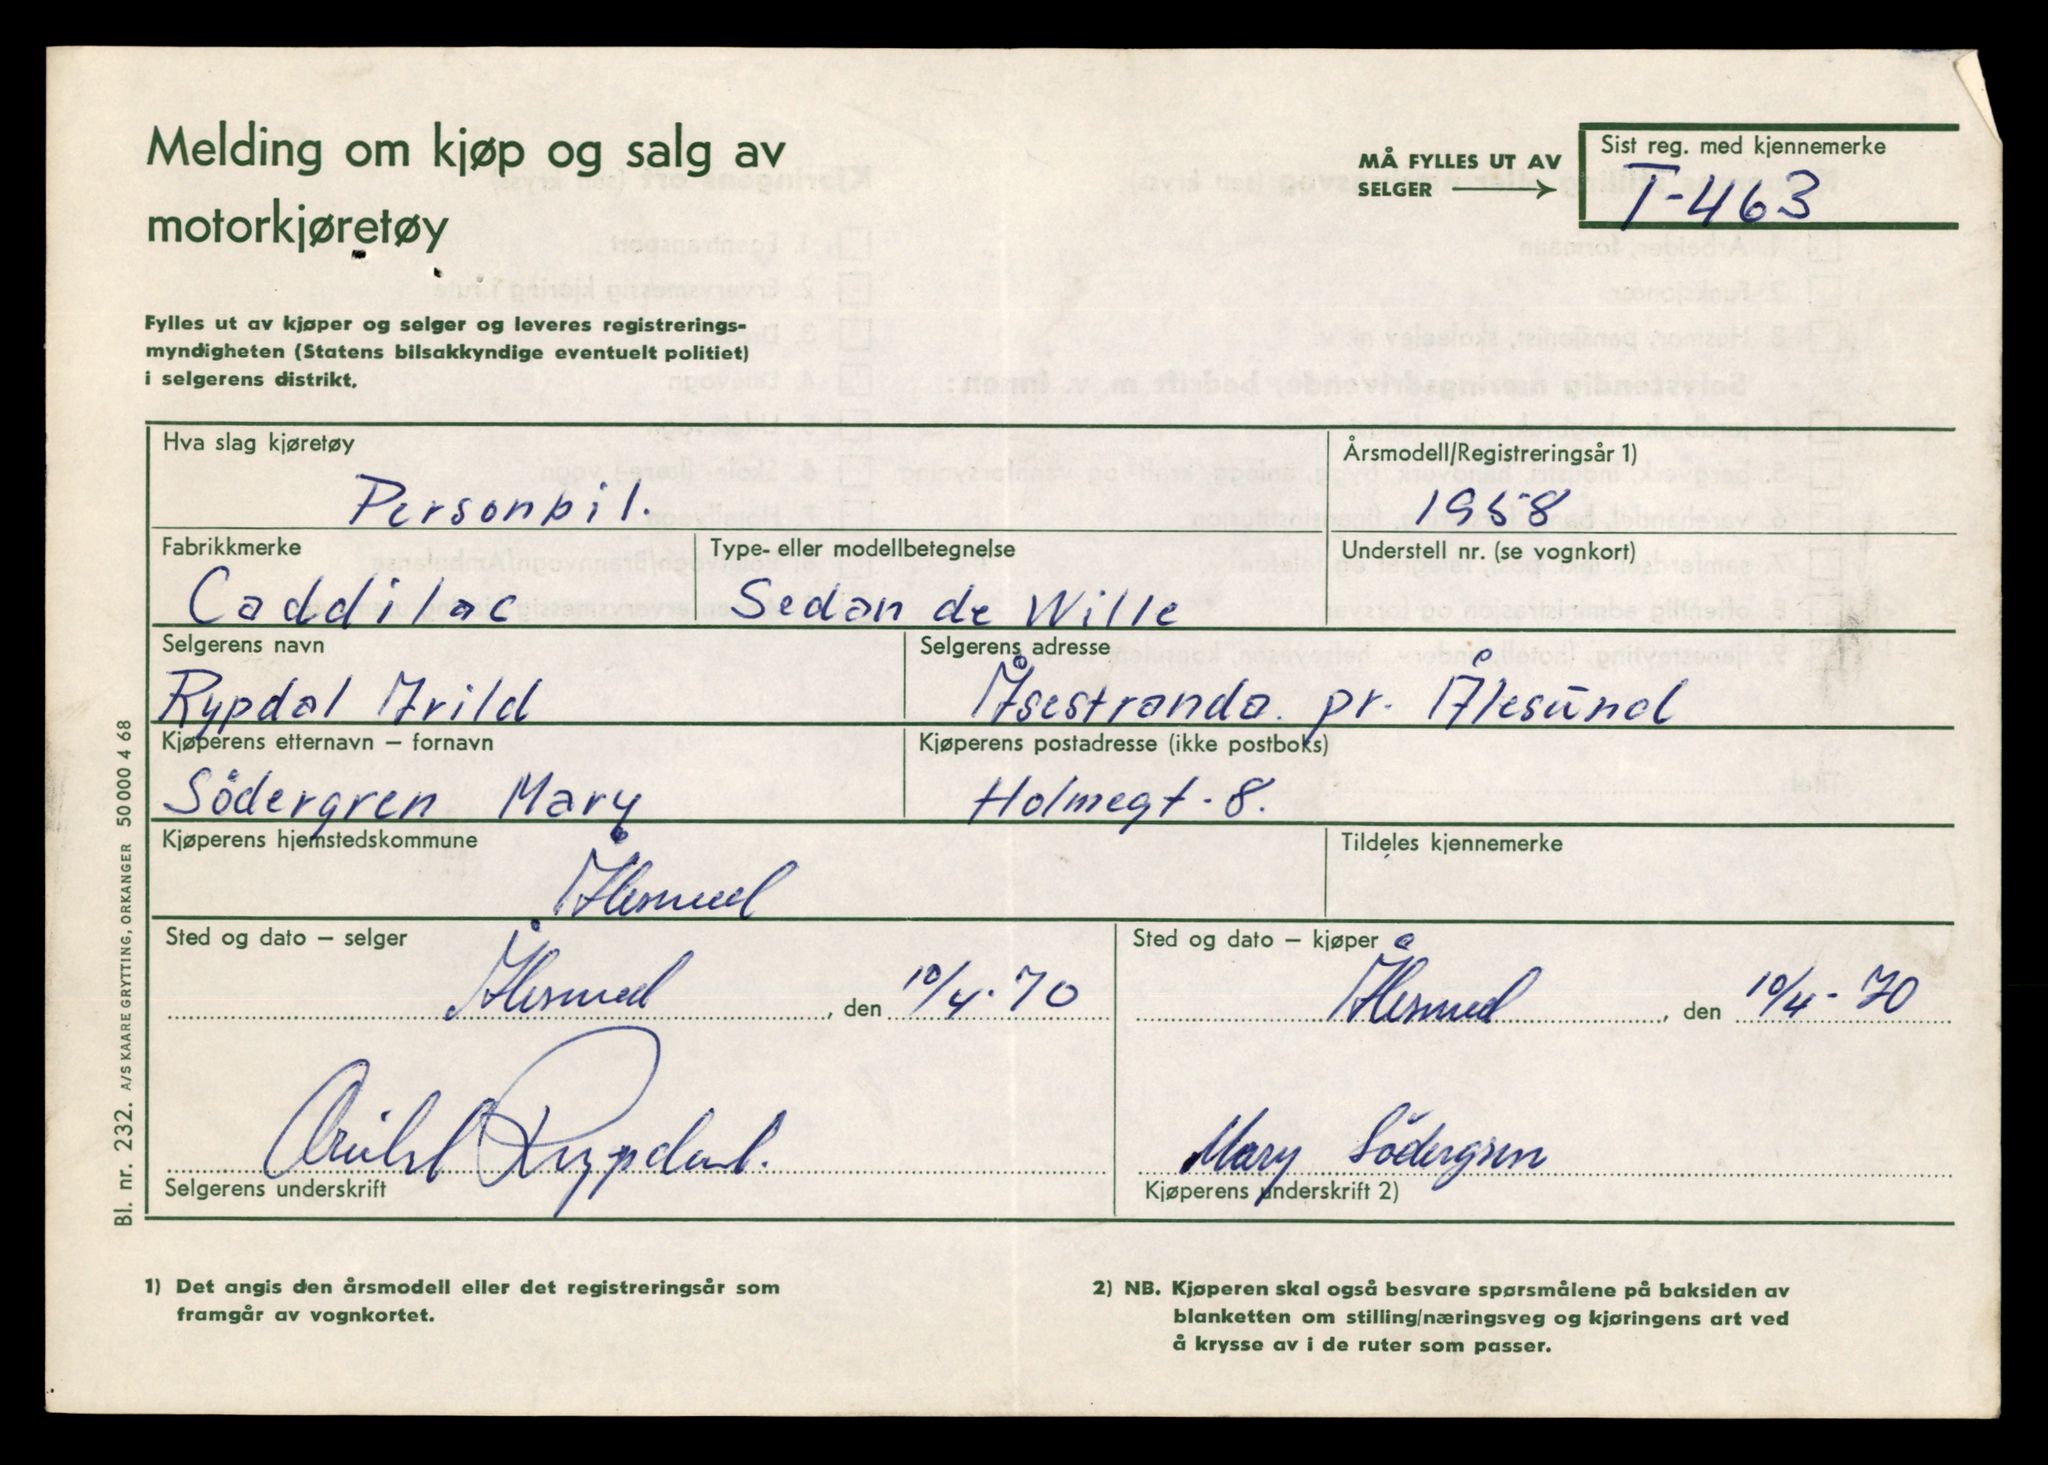 Melding om kjøp og salg av
motorkjøretøy
MÅ FYLLES UT AV
SELGER
Sist reg. med kjennemerke
T-463
Fylles ut av kjøper og selger og leveres registrerings-
myndigheten (Statens bilsakkyndige eventuelt politiet)
i selgerens distrikt.
Hva slag kjøretøy
Personbil.
Årsmodell/Registreringsår 1)
1958
Fabrikkmerke
Caddilac
Type- eller modellbetegnelse
Sedan de Wille
Understell nr. (se vognkort)
Selgerens navn
Rypdal Arild
Selgerens adresse
Åsestranda. pr. Ålesund
Kjøperens etternavn – fornavn
Södergren Mary
Kjøperens postadresse (ikke postboks)
Holmegt. 8.
Kjøperens hjemstedskommune
Ålesund
Tildeles kjennemerke
Sted og dato – selger
Ålesund, den 10/4-70
Sted og dato – kjøper
Ålesund, den 10/4-70
Arild Rypdal.
Selgerens underskrift
Mary Södergren
Kjøperens underskrift 2)
1) Det angis den årsmodell eller det registreringsår som
framgår av vognkortet.
2) NB. Kjøperen skal også besvare spørsmålene på baksiden av
blanketten om stilling/næringsveg og kjøringens art ved
å krysse av i de ruter som passer.
Bl. nr. 232. A/S KAARE GRYTTING, ORKANGER 50 000 4 68